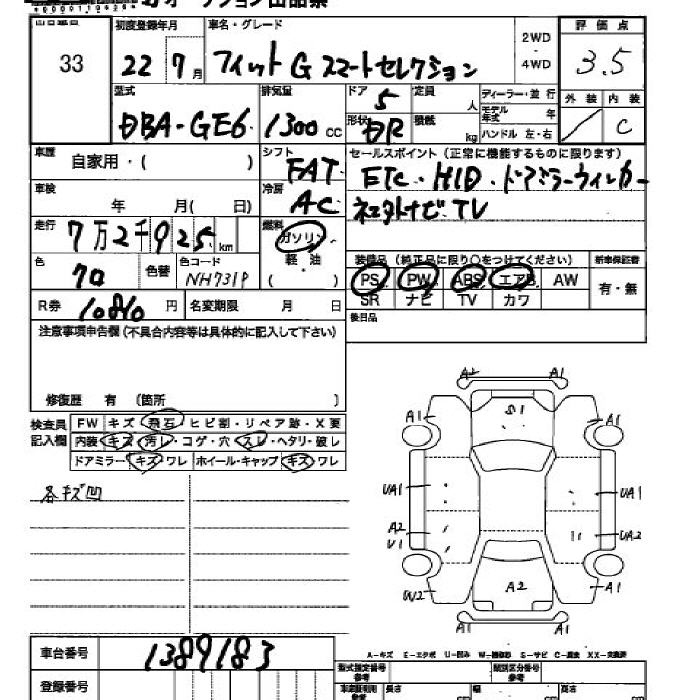 オークション出品票
33
初度登録年月
22 7月
車名・グレード
フィット G スマートセレクション
2WD
・
4WD
評価点
3.5
型式
DBA-GE6
排気量
1300cc
ドア 5
定員 人
ディーラー・並行
モデル年式 年
形状 HR
積載 kg
ハンドル 左・右
外装 内装
C
車歴
自家用・( )
シフト
FAT
セールスポイント(正常に機能するものに限ります)
ETC・HID・ドアミラーウィンカー
TV
車検
年 月( 日)
冷房
AC
走行
7万2千925km
燃料
ガソリン
軽・油
( )
装備品(純正品に限り○をつけてください)
新車保証書
PS PW ABS エアB AW
有・無
SR ナビ TV カワ
色
色替
色コード
NH731P
R券 10810円
名変期限 月 日
後日品
注意事項申告欄(不具合内容等は具体的に記入して下さい)
修復歴 有 〔箇所 〕
検査員
記入欄
FW キズ・飛石・ヒビ割・リペア跡・X要
内装 キズ・汚レ・コゲ・穴・スレ・ヘタリ・破レ
ドアミラー キズ・ワレ ホイール・キャップ キズ・ワレ
各キズ凹
A2 A1
A1 S1 A1
UA1 UA1
A2
U1
UA2
W2 A2 A1
A1
A-キズ E-エクボ U-凹み W-補修跡 S-サビ C-腐食 XX-交換済
車台番号
1389183
登録番号
型式指定番号
参考
類別区分番号
参考
長さ
幅
高さ